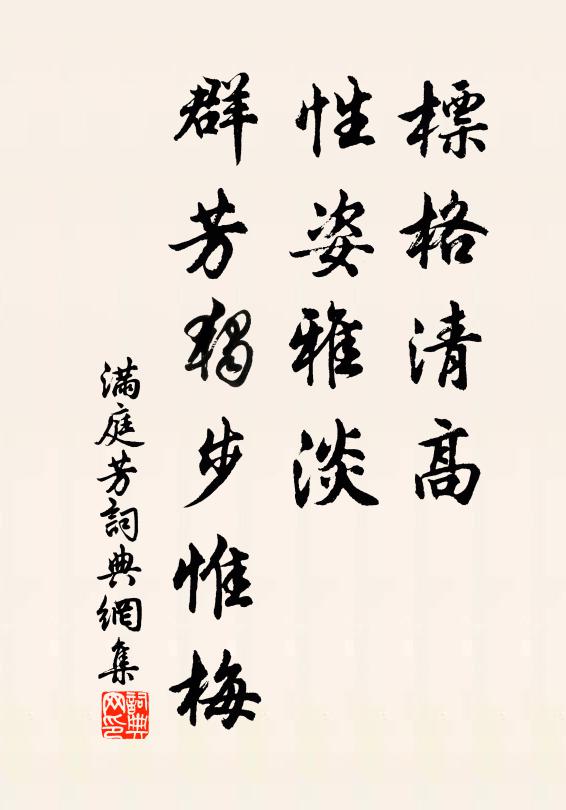 標格清高
性姿雅淡
群芳獨步惟梅
滿庭芳詞典網集
詞典网印